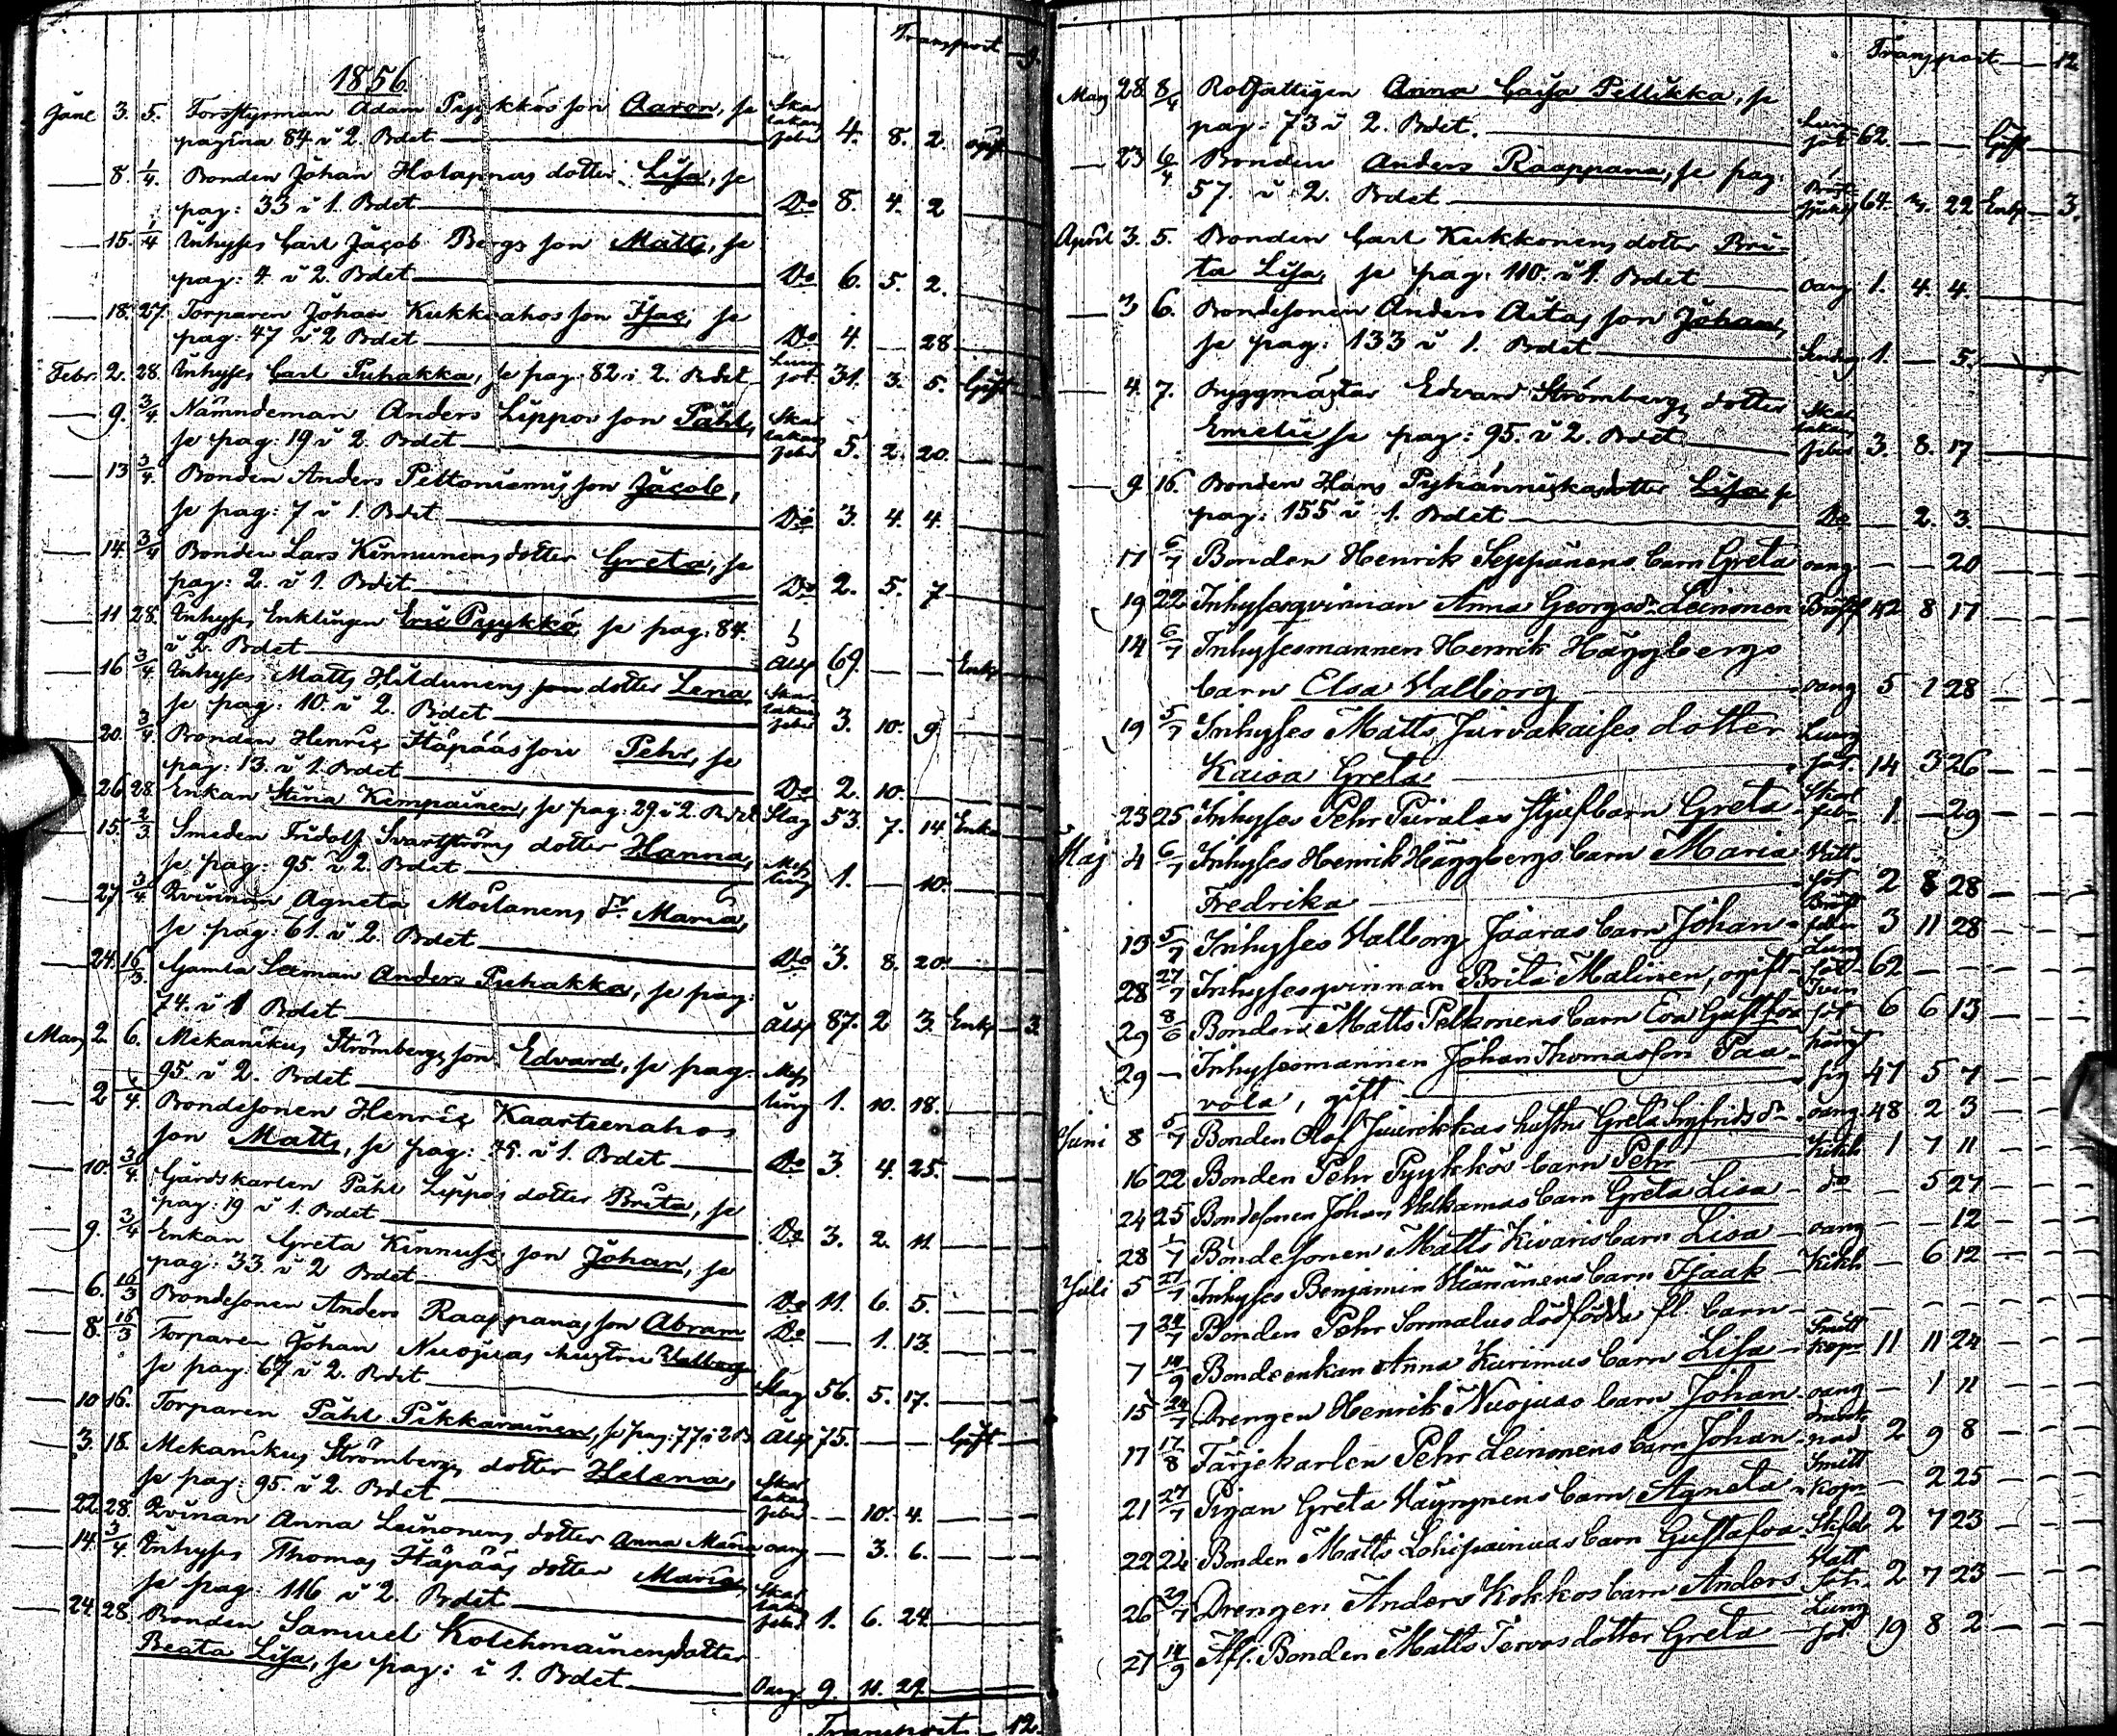 Transport 9.
1856.
Janr 3. 5. Forsstyrman Adam Pyykkös son Aaron, se Skar
pagina 84 i 2. Bdet lakans feber 4. 8. 2. ogift
8. 1/4. Bonden Johan Holapnas dotter Lisa, se
pag: 33 i 1. Bdet Do 8. 4. 2
15. 1/4 Inhyses Carl Jacob Bergs son Matts, se
pag: 4 i 2. Bdet Do 6. 5. 2.
18. 27. Torparen Johan Kukkoahos son Isac, se
pag: 47 i 2 Bdet Do 4. — 28
Febr. 2. 28. Inhyses Carl Puhakka, se pag. 82 i 2. Bdet Lung sot. 31. 3. 5. Gift
9. 3/4 Nämndeman Anders Lippos son Påhl, Skar
se pag: 19 i 2. Bdet lakans feber 5. 2. 20.
13 3/4. Bonden Anders Peltoniemis son Jacob,
se pag: 7 i 1. Bdet Do 3. 4. 4.
14. 3/4 Bonden Lars Kinnunens dotter Greta, se
pag: 2. i 1. Bdet Do 2. 5. 7
11 28. Inhyses Enklingen Eric Pyykkö, se pag. 84.
i 2. Bdet Ålsp 69. — — Enkl
16 3/4 Inhyses Matts Hildunens dotter Lena, Skar
se pag: 10. i 2. Bdet lakans feber 3. 10. 9.
20. 3/4 Bonden Henric Häpääs son Pehr, se
pag: 13. i 2. Bdet Do 2. 10.
26 28. Enkan Stina Kempainen, se pag: 29 i 2. Bdet Slag 53. 7. 14. Enka
15. 2/3 Smeden Fridolf Svartströms dotter Hanna,
se pag: 95. i 2. Bdet Mess ling 1. — 10.
27 3/4 Qvinnan Agneta Moilanens dr Maria,
se pag: 61. i 2. Bdet Do 3. 8. 20.
24. 16/3. Gamla Leman Anders Puhakka, se pag:
74. i 1 Bdet Ålsp 87. 2 3. Enkl 3.
Mars 2. 6. Mekanikus Strömbergs son Edvard, se pag.
95. i 2. Bdet Mess ling 1. 10. 18.
2 /4. Bondesonen Henric Kaarteenahos
son Matts, se pag: 35. i 1. Bdet Do 3. 4. 25.
10. 3/4. Gårdskarlen Påhl Lippos dotter Brita, se
pag: 19 i 1. Bdet Do 3. 2. 11.
9. 3/4 Enkan Greta Kinnuses son Johan, se
pag: 33. i 2 Bdet Do 11. 6. 5.
6. 16/3 Bondesonen Anders Raappanas son Abram Do — 1. 13.
8. 16/3 Torparen Johan Nuojuas hustru Valborg
se pag: 67 i 2. Bdet Slag 56. 5. 17.
10 16. Torparen Påhl Pikkarainen, se pag: 77 i 2 B Ålsp 75. — — Gift
3. 18. Mekanikus Strömbergs dotter Helena, Skar
se pag: 95. i 2. Bdet lakans feber — 10. 4.
22. 28. Qvinan Anna Leinonens dotter Anna Maria oang — 3. 6.
14. 3/4 Inhyses Thomas Häpääs dotter Maria, Skar
se pag. 116 i 2. Bdet lakans feber 1. 6. 24.
24. 28. Bonden Samuel Kolehmainens dotter
Beata Lisa, se pag: i 1. Bdet Oang 9. 11. 29.
Transport — 12.
Transport 12
Mars 28. 8/4 Rotfattigen Anna Caisa Pellikka, se
pag: 73 i 2. Bdet. Lung sot 62. — — Gift
23 6/4 Bonden Anders Raappana, se pag:
57. i 2. Bdet Bröst sjukd 64. 22 Enkl 3.
April 3. 5. Bonden Carl Kukkonens dotter Bri-
ta Lisa, se pag: 110. i 1. Bdet oang 1. 4. 4.
3 6. Bondesonen Anders Aitas son Johan,
se pag: 133 i 1. Bdet 1. — 5.
4. 7. Byggmästar Edvard Strömbergs dotter Skar
Emelie se pag: 95. i 2. Bdet lakans feber 3. 8. 17
9 16. Bonden Hans Pyhänniskas dotter Lisa se
pag: 155 i 1. Bdet Do — 2. 3.
17 6/7 Bonden Henrik Seppänens barn Greta oang — — 20
19 22 Inhysesqvinnan Anna Georgsdr Leinonen Bröstf 42 8 17
14 6/7 Inhysesmannen Henrik Häggbergs
barn Elsa Valborg oang 5 1 28
19 5/7 Inhyses Matts Jurvakaises dotter Lung
Kaisa Greta sot. 14 3 26
23 25 Inhyses Pehr Piiralas styfbarn Greta feb 1 — 29
Maj 4 6/7 Inhyses Henrik Häggbergs barn Maria Vatt
Fredrika sot 2 8 28
13 5/7 Inhyses Valborg Jaaras barn Johan Bröst feber 3 11 28
28 27/7 Inhysesqvinnan Brita Malinen, ogift Lung sot 62 —
29 8/6 Bonden Matts Pelkonens barn Eva Gustafva sot 6 6 13
29 — Inhysesmannen Johan Thomasson Paa-
vola, gift 47 5 7
Juni 8 5/7 Bonden Olof Juurikkas hustru Greta Sigfridsdr oang 48 2 3
16 22 Bonden Pehr Pyykkös barn Pehr Kikh 1 7 11
24 25 Bondesonen Johan Valkamas barn Greta Lisa do — 5 27
28 1/7 Bondesonen Matts Kivaris barn Lisa oang — — 12
Juli 5 27/7 Inhyses Benjamin Väänänens barn Isaak Kikh — 6 12
7 24/7 Bonden Pehr Sormalus dödfödda fl. barn
7 14/9 Bondeenkan Anna Kurimus barn Lisa Smitt kopr 11 11 24
15 24/7 Drengen Henrik Nuojuas barn Johan oang — 1 11
17 17/8 Färjekarlen Pehr Leinonens barn Johan 2 9 8
21 27/7 Pigan Greta Väyrynens barn Agneta Smitt kopr — 2 25
22 24 Bonden Matts Lohipainuas barn Gustafva 2 7 23
26 29/7 Drengen Anders Kokkos barn Anders Vatt Sot. 2 7 23
27 14/9 Afl. Bonden Matts Tervos dotter Greta Lung sot 19 8 2